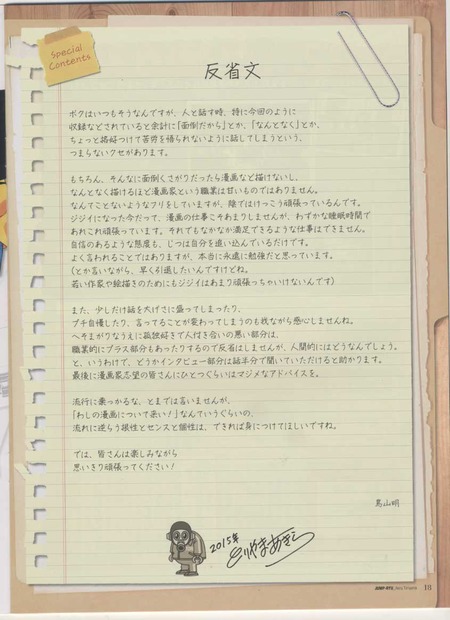 Special
Contents
反省文
ボクはいつもそうなんですが、人と話す時、特に今回のように
収録などされていると余計に「面倒だから」とか、「なんとなく」とか、
ちょっと格好つけて苦労を悟られないように話してしまうという、
つまらないクセがあります。
もちろん、そんなに面倒くさがりだったら漫画など描けないし、
なんとなく描けるほど漫画家という職業は甘いものではありません。
なんてことないようなフリをしていますが、陰ではけっこう頑張っているんです。
ジジイになった今だって、漫画の仕事こそあまりしませんが、わずかな睡眠時間で
あれこれ頑張っています。それでもなかなか満足できるような仕事はできません。
自信のあるような態度も、じつは自分を追い込んでいるだけです。
よく言われることではありますが、本当に永遠に勉強だと思っています。
(とか言いながら、早く引退したいんですけどね。
若い作家や絵描きのためにもジジイはあまり頑張っちゃいけないんです)
また、少しだけ話を大げさに盛ってしまったり、
プチ自慢したり、言ってることが変わってしまうのも我ながら感心しませんね。
へそまがりなうえに孤独好きで人付き合いの悪い部分は、
職業的にプラス部分もあったりするので反省はしませんが、人間的にはどうなんでしょう。
と、いうわけで、どうかインタビュー部分は話半分で聞いていただけると助かります。
最後に漫画家志望の皆さんにひとつくらいはマジメなアドバイスを。
流行に乗っかるな、とまでは言いませんが、
「わしの漫画について来い!」なんていうぐらいの、
流れに逆らう根性とセンスと個性は、できれば身につけてほしいですね。
では、皆さんは楽しみながら
思いきり頑張ってください!
鳥山明
2015年 とりやまあきら
18